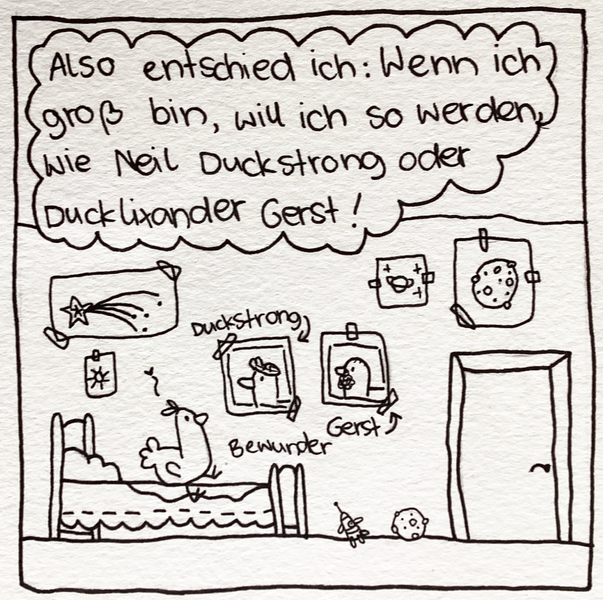 Also entschied ich: Wenn ich
groß bin, will ich so werden,
wie Neil Duckstrong oder
Ducklixander Gerst!
Duckstrong
Gerst
Bewunder